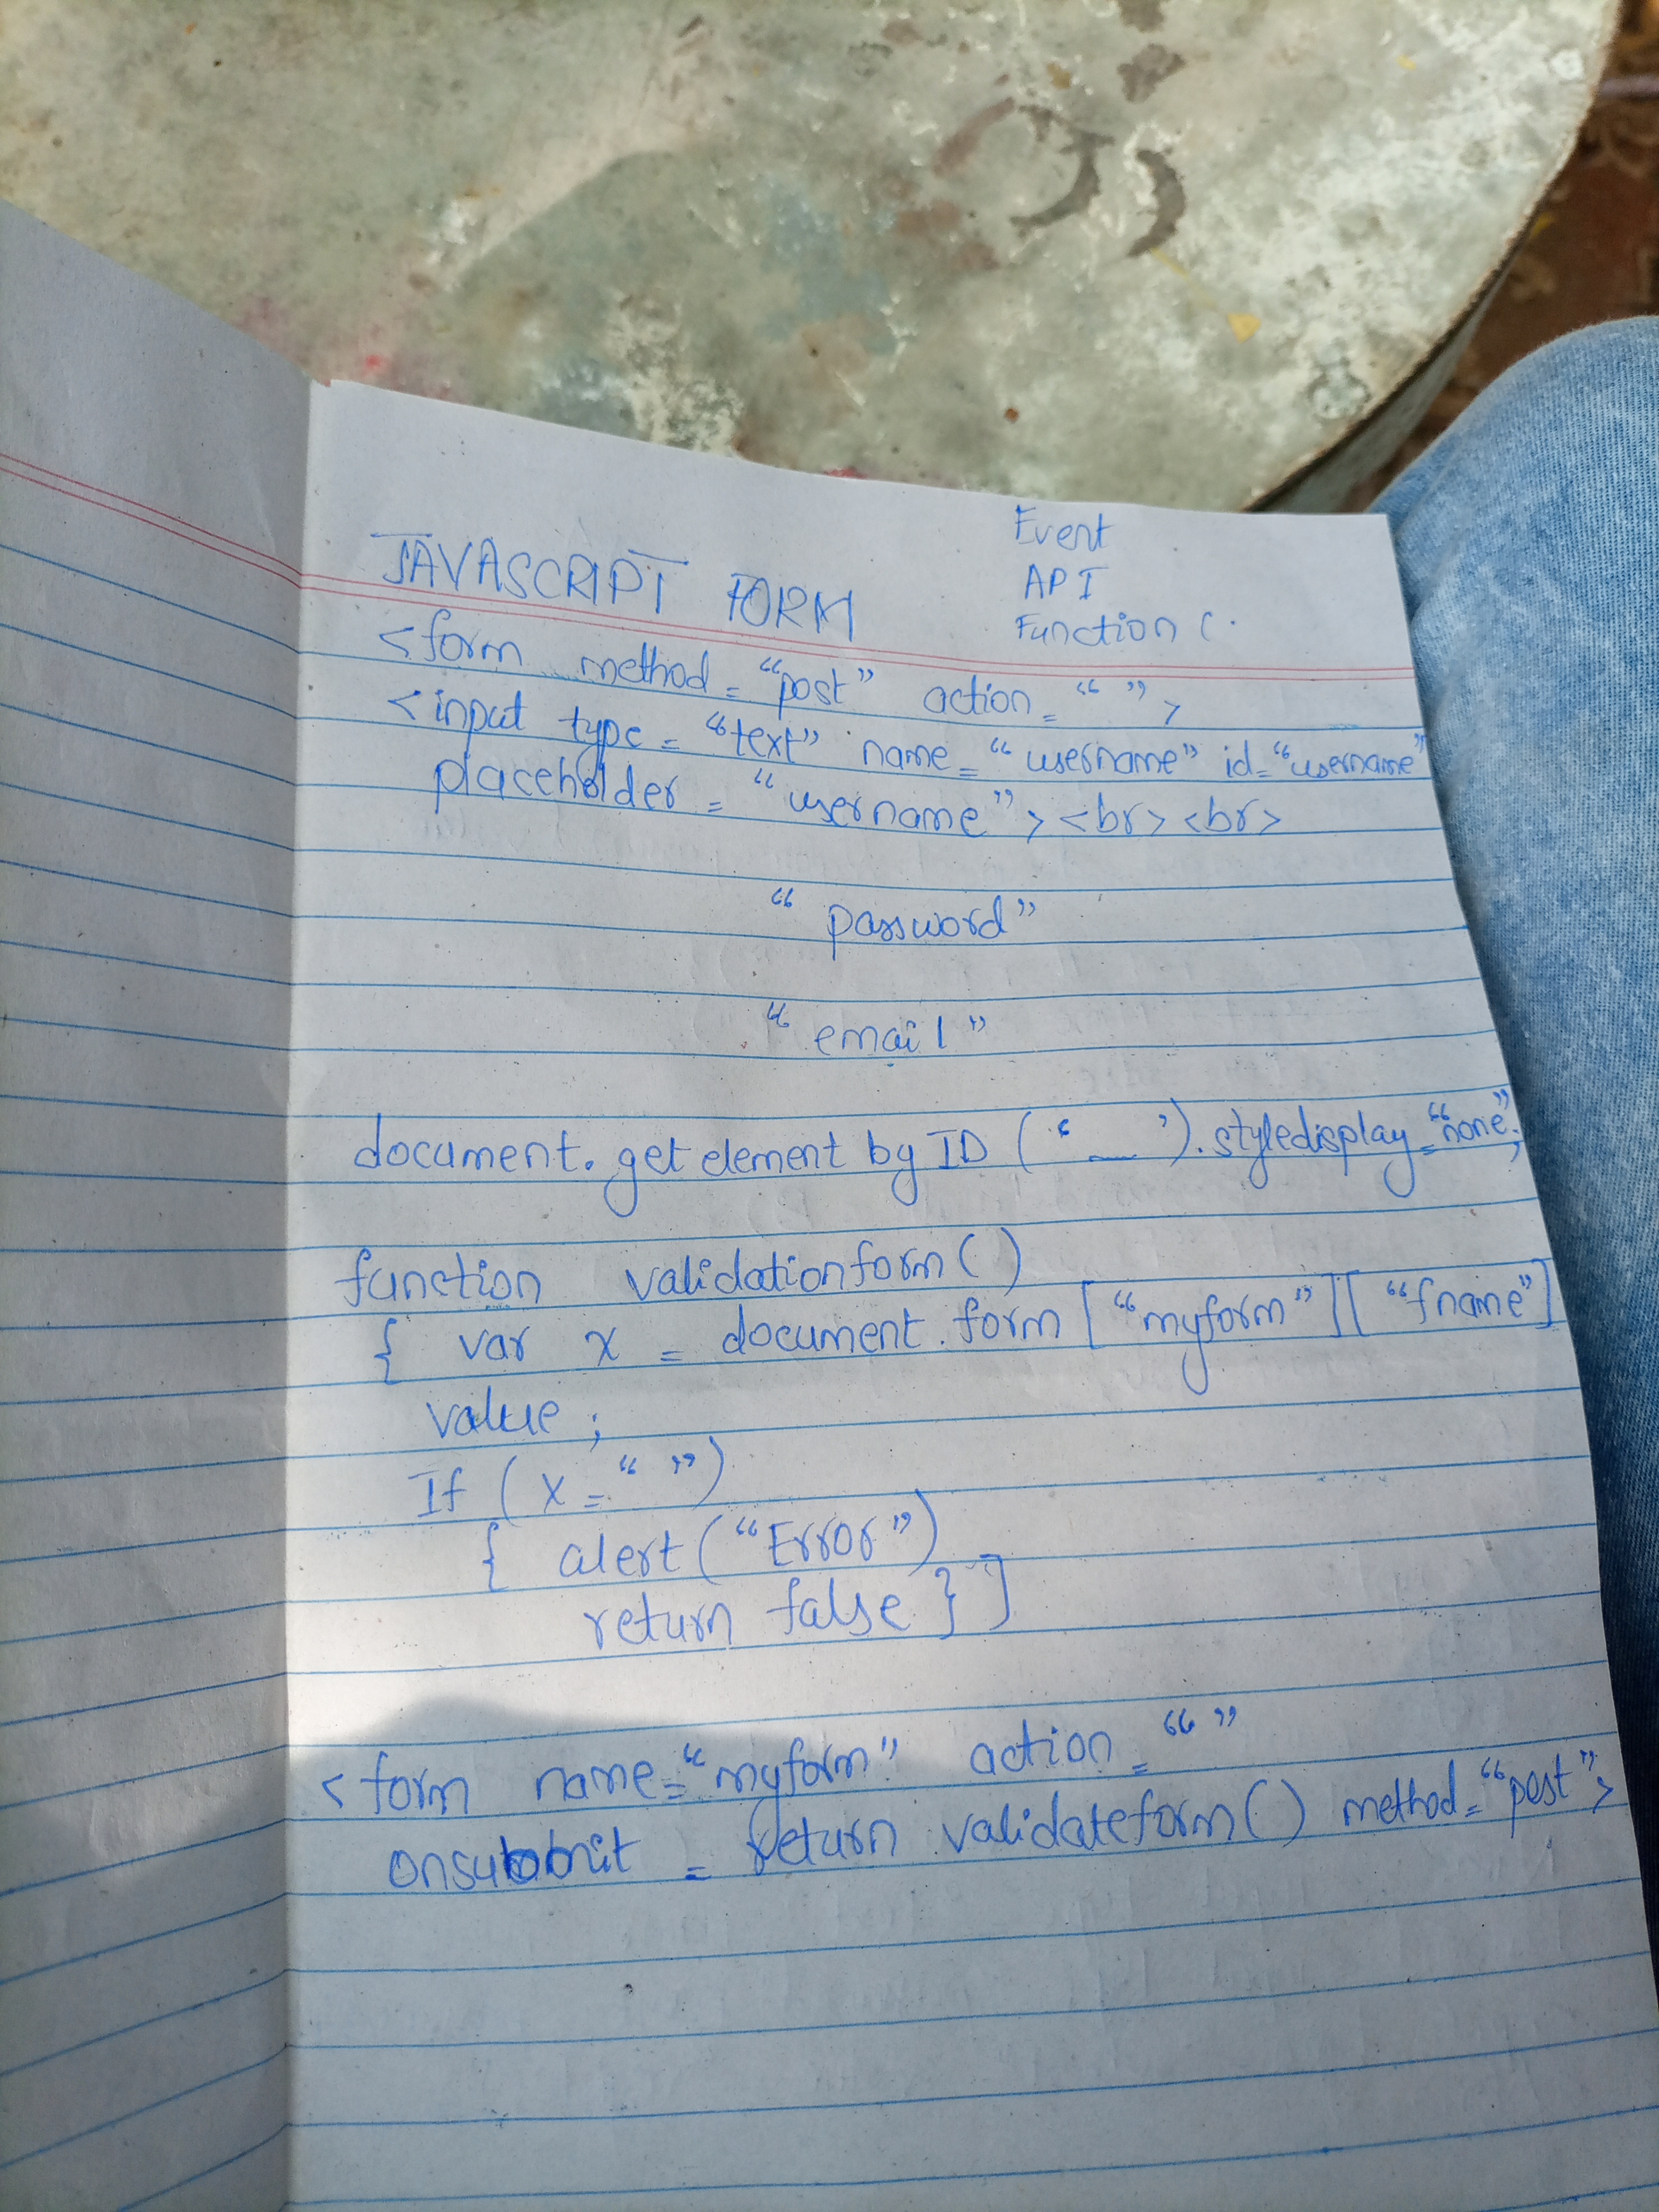 Event
API
JAVASCRIPT FORM
Function (.
<form method = "post" action = " ">
<input type = "text" name = "username" id = "username"
placeholder = "username"> <br> <br>
"password"
"email"
document. get element by ID ( ' __ ' ). styledisplay = "none";
function validationform ( )
{ var x = document . form ["myform"] ["fname"]
value ;
If ( x = " " )
{ alert ( "Error" )
return false } ]
< form name = "myform" action = " "
onsubmit = return validateform ( ) method = "post" >